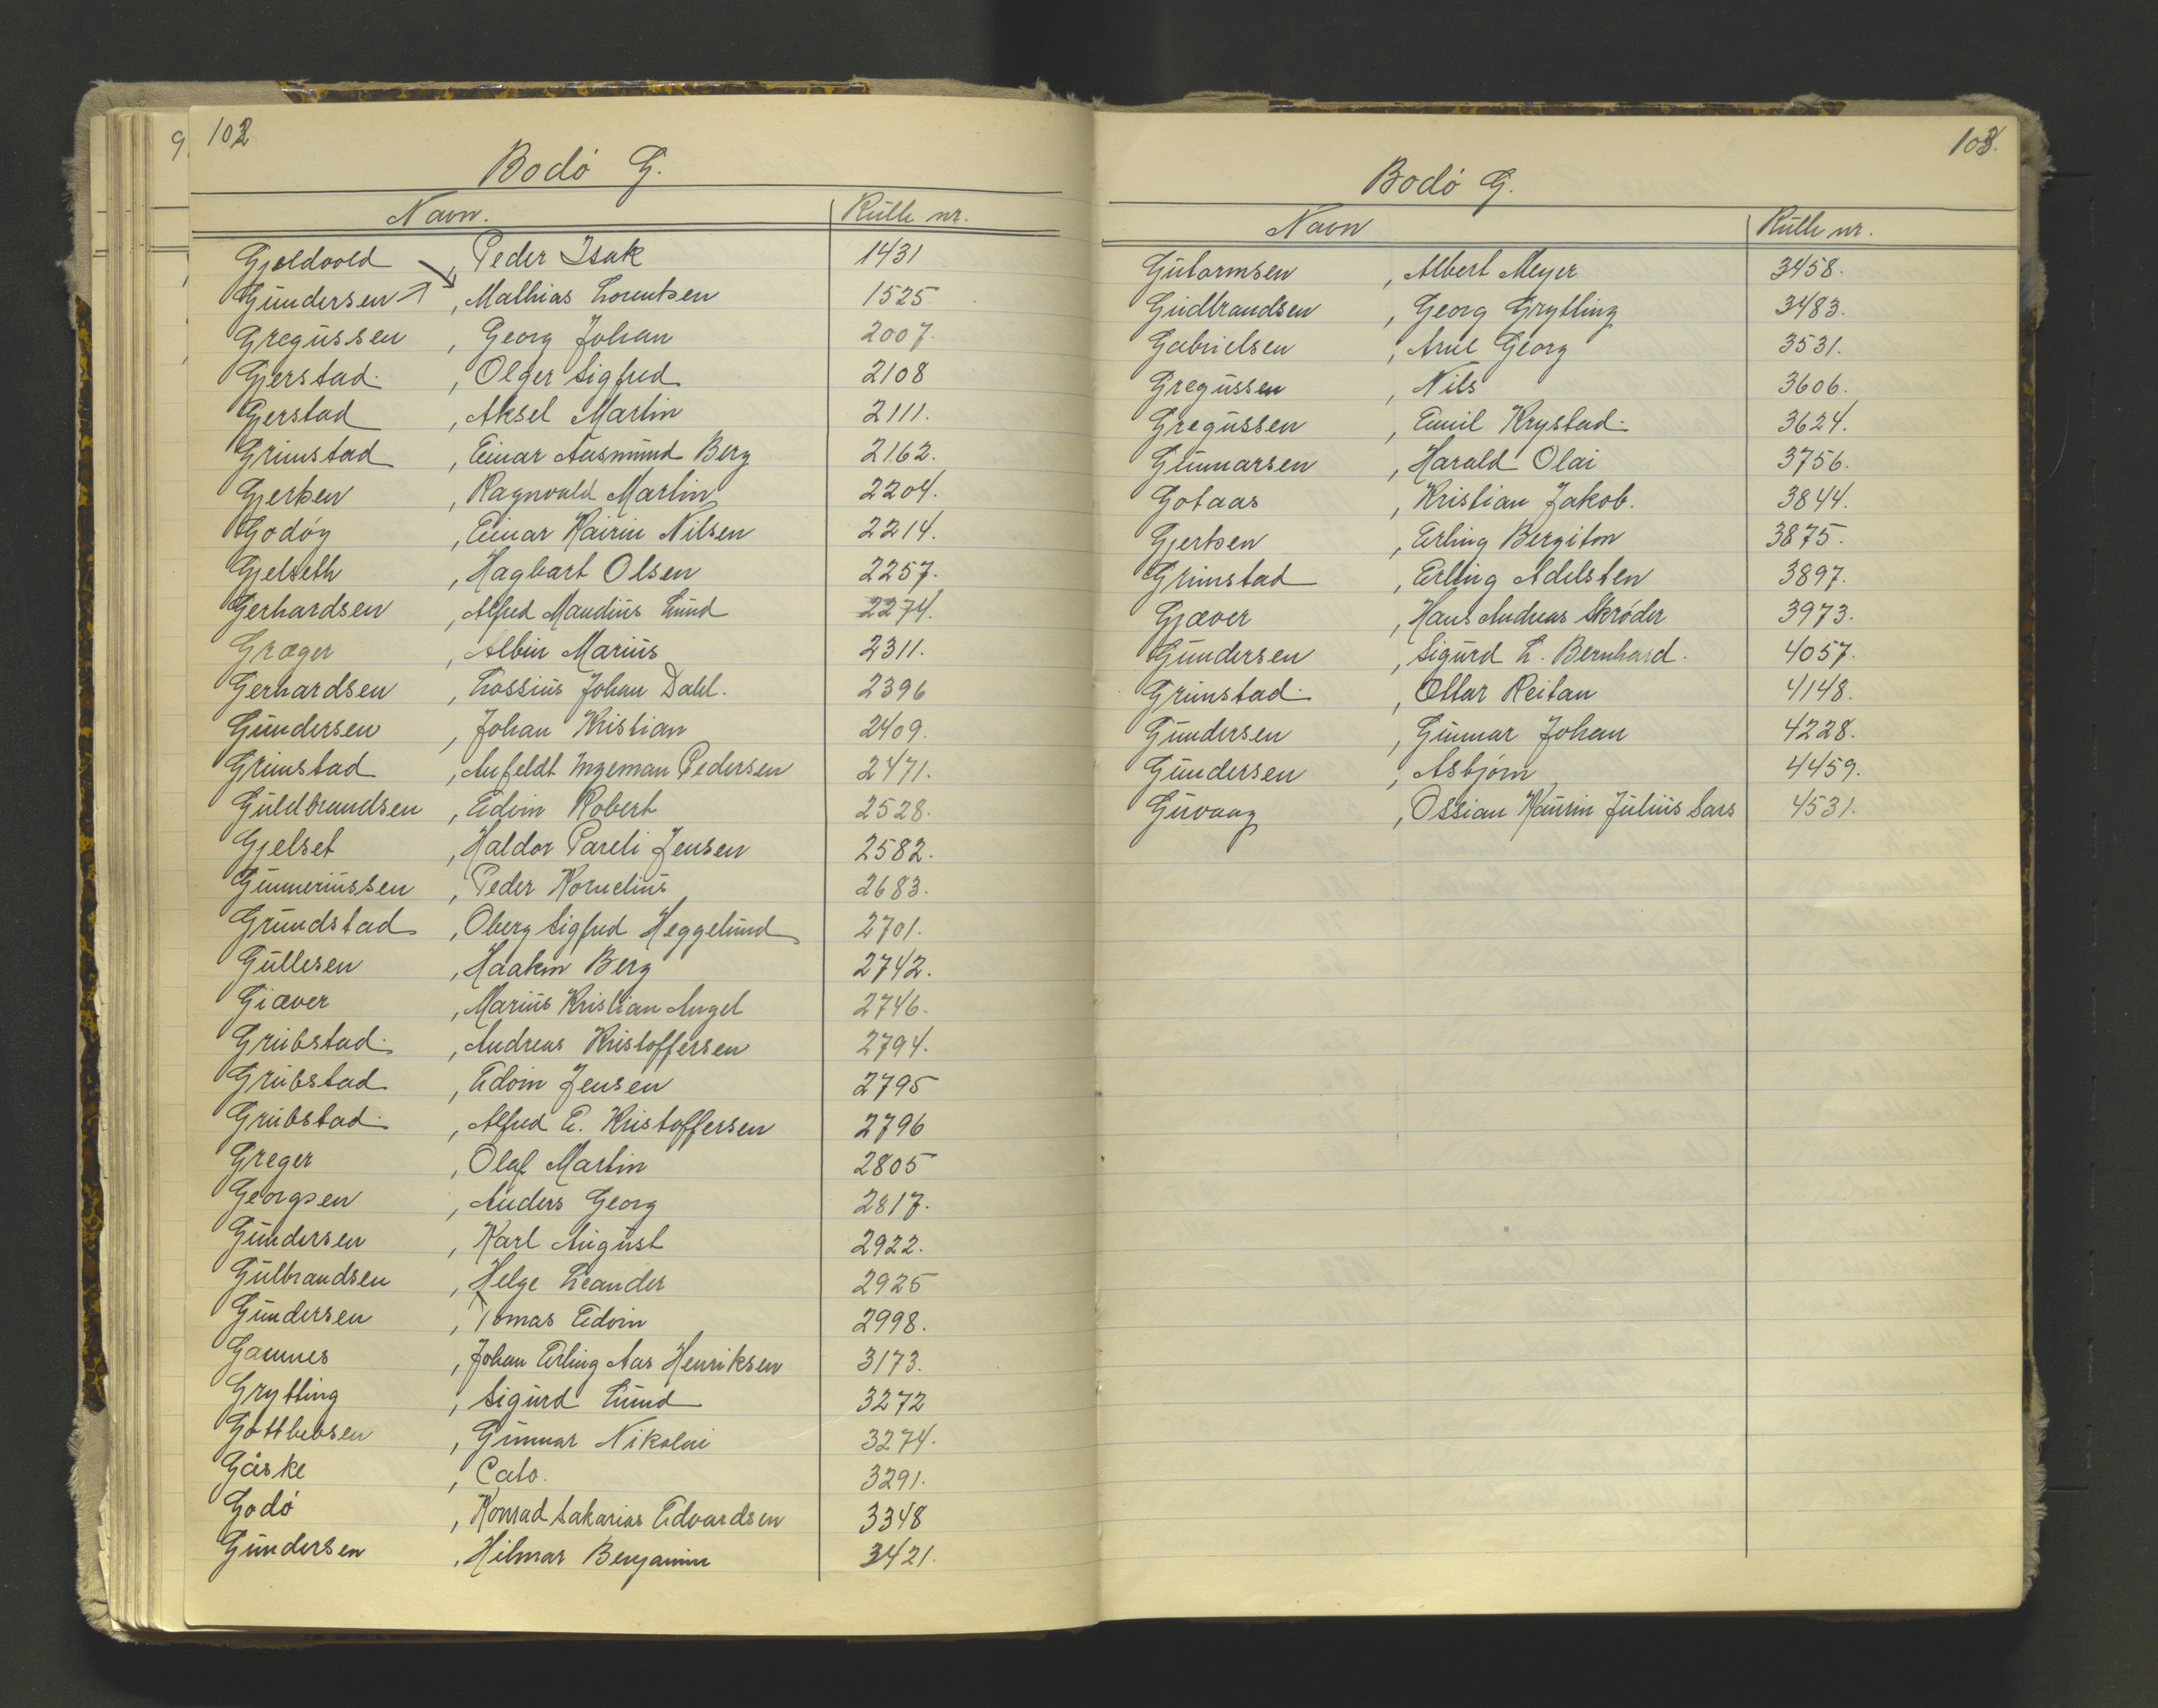 9
102
Bodó G.
Navn. Rulle nr.
Gjeldvold , Peder Isak 1431
Gundersen , Mathias Lorentsen 1525
Gregussen , Georg Johan 2007.
Gjerstad , Olger Sigfred 2108
Gjerstad , Aksel Martin 2111.
Grimstad , Einar Aasmund Berg 2162.
Gjertsen , Ragnvald Martin 2204.
Godóy , Einar Kaurin Nilsen 2214.
Gjelseth , Hagbart Olsen 2257.
Gerhardsen , Alfred Maudius Lund 2274.
Græger , Albin Marius 2311.
Gerhardsen , Lossius Johan Dahl. 2396
Gundersen , Johan Kristian 2409.
Grimstad , Anfeldt Ingeman Pedersen 2471.
Guldbrandsen , Edvin Robert 2528.
Gjelset , Haldor Pareli Jensen 2582.
Gunneriussen , Peder Kornelius 2683.
Grundstad , Oberg Sigfred Heggelund 2701.
Gullesen , Haakon Berg 2742.
Giæver , Marius Kristian Angel 2746.
Grubstad , Andreas Kristoffersen 2794.
Grubstad , Edvin Jensen 2795
Grubstad , Alfred E. Kristoffersen 2796
Greger , Olaf Martin 2805
Georgsen , Anders Georg 2817.
Gundersen , Karl August 2922.
Gulbrandsen , Helge Leander 2925
Gundersen , Tomas Edvin 2998.
Gamnes , Johan Erling Aas Henriksen 3173.
Grytting , Sigurd Lund 3272
Gottlebsen , Gunnar Nikolai 3274.
Gåske , Cato. 3291.
Godó , Konrad Sakarias Edvardsen 3348
Gundersen , Hilmar Benjamin 3421.
103.
Bodó G.
Navn Rulle nr.
Gutormsen , Albert Meyer 3458.
Gudbrandsen , Georg Grytting 3483.
Gabrielsen , Arne Georg 3531.
Gregussen , Nils 3606.
Gregussen , Emil Krystad. 3624.
Gunnarsen , Harald Olai 3756.
Gotaas , Kristian Jakob. 3844.
Gjertsen , Erling Bergiton 3875.
Grimstad , Erling Adelsten 3897.
Gjæver , Hans Andreas Skróder 3973.
Gundersen , Sigurd L. Bernhard. 4057.
Grimstad , Ottar Reitan 4148.
Gundersen , Gunnar Johan 4228.
Gundersen , Asbjórn 4459.
Gurvaag , Ossian Kaurin Julius Sars 4531.